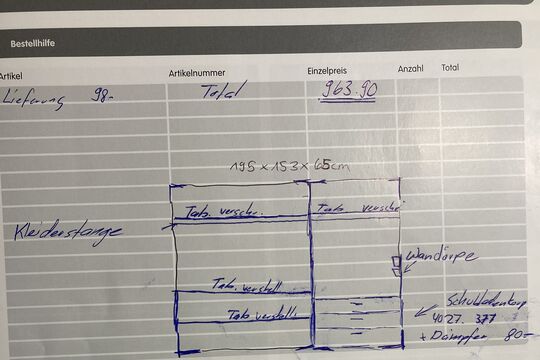 Bestellhilfe
Artikel Artikelnummer Einzelpreis Anzahl Total
Lieferung 98.- Total 963.90
195 x 153 x 65cm
Tab. versch. Tab. versch
Kleiderstange
Tab. verstell.
Tab. verstell.
4027. 377
+ Dämpfer 80.-